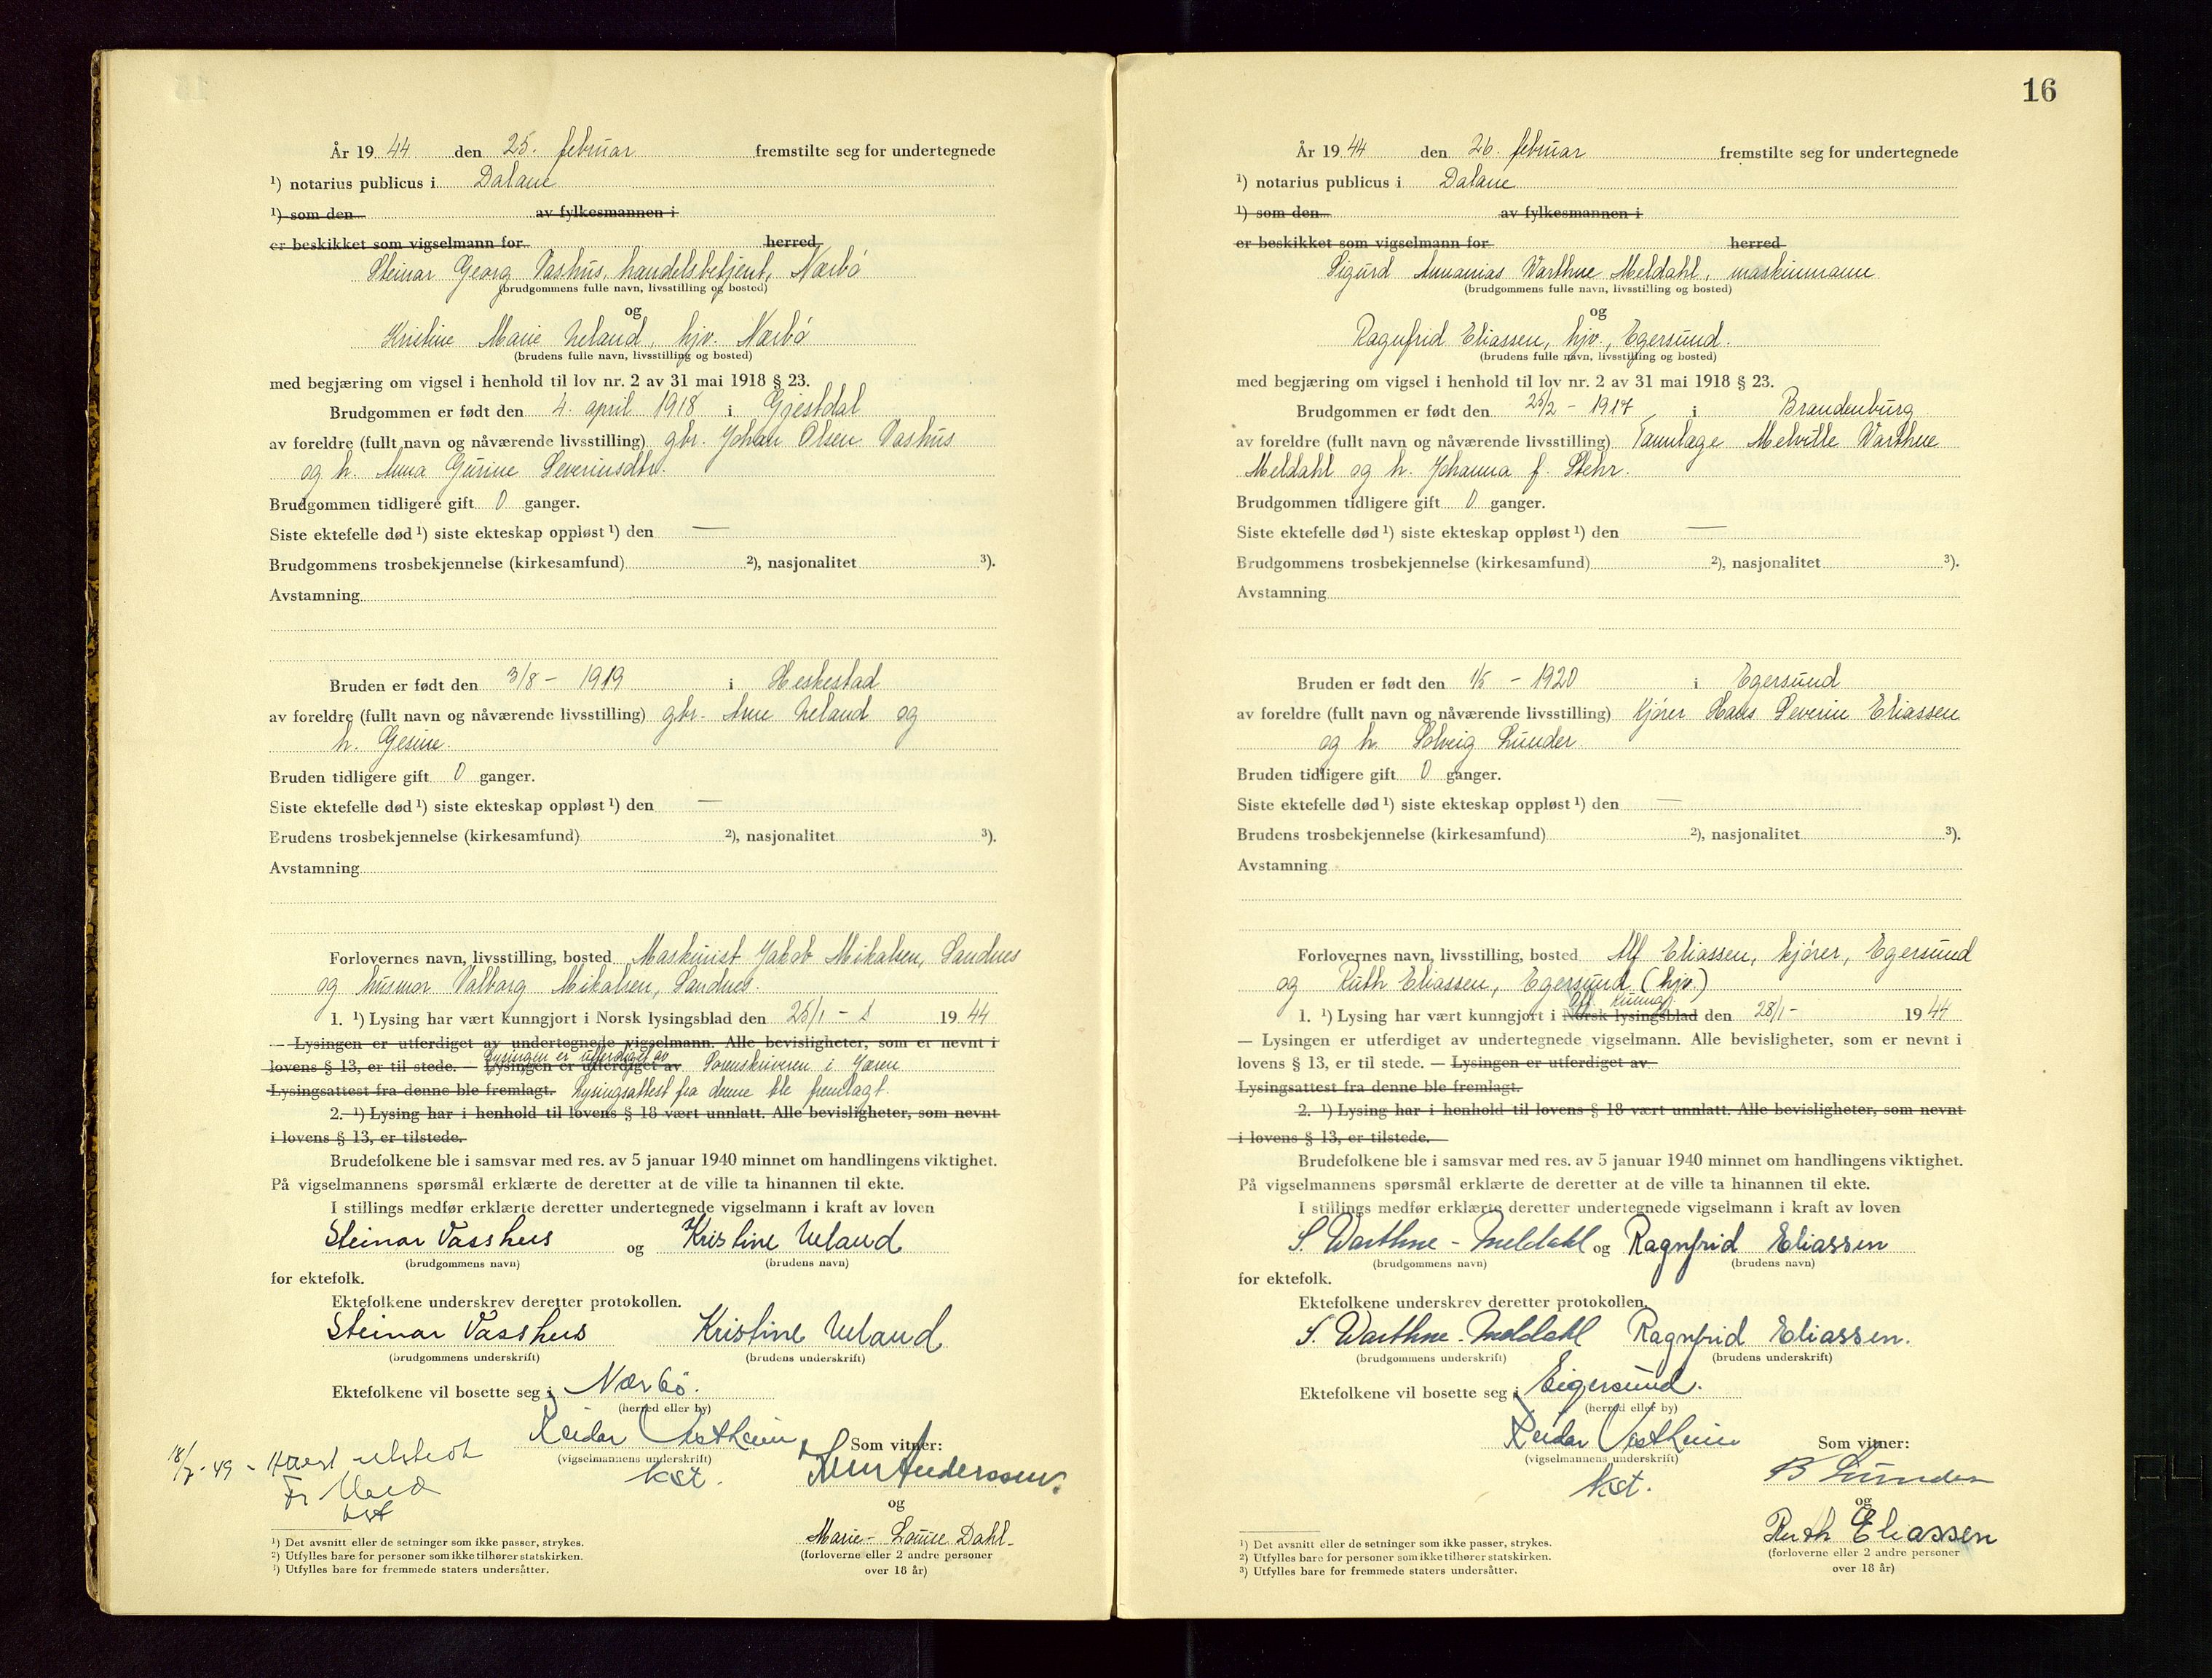 År 1944 den 25. februar fremstilte seg for undertegnede
¹) notarius publicus i Dalane
¹) som den av fylkesmannen i
er beskikket som vigselmann for herred
Steinar Georg Vashus, handelsbetjent, Nærbö
(brudgommens fulle navn, livsstilling og bosted)
og
Kristine Marie Ueland, hjv. Nærbö
(brudens fulle navn, livsstilling og bosted)
med begjæring om vigsel i henhold til lov nr. 2 av 31 mai 1918 § 23.
Brudgommen er født den 4. april 1918 i Gjestdal
av foreldre (fullt navn og nåværende livsstilling) gbr. Johan Olsen Vashus
og h. Anna Gurine Severinsdtr.
Brudgommen tidligere gift 0 ganger.
Siste ektefelle død ¹) siste ekteskap oppløst ¹) den —
Brudgommens trosbekjennelse (kirkesamfund) ²), nasjonalitet ³).
Avstamning
Bruden er født den 3/8 - 1919 i Heskestad
av foreldre (fullt navn og nåværende livsstilling) gbr. Arne Ueland og
h. Gesine.
Bruden tidligere gift 0 ganger.
Siste ektefelle død ¹) siste ekteskap oppløst ¹) den —
Brudens trosbekjennelse (kirkesamfund) ²), nasjonalitet ³).
Avstamning
Forlovernes navn, livsstilling, bosted Maskinist Jakob Mikalsen, Sandnes
og husmor Valborg Mikalsen, Sandnes.
1. ¹) Lysing har vært kunngjort i Norsk lysingsblad den 25/1 - 1944
— Lysingen er utferdiget av undertegnede vigselmann. Alle bevisligheter, som er nevnt i
Lysingen er utferdiget av
lovens § 13, er til stede. — Lysingen er utferdiget av Sorenskriveren i Jæren
Lysingsattest fra denne ble fremlagt. Lysingsattest fra denne ble fremlagt.
2. ¹) Lysing har i henhold til lovens § 18 vært unnlatt. Alle bevisligheter, som nevnt
i lovens § 13, er tilstede.
Brudefolkene ble i samsvar med res. av 5 januar 1940 minnet om handlingens viktighet.
På vigselmannens spørsmål erklærte de deretter at de ville ta hinannen til ekte.
I stillings medfør erklærte deretter undertegnede vigselmann i kraft av loven
Steinar Vasshus og Kristine Ueland
(brudgommens navn) (brudens navn)
for ektefolk.
Ektefolkene underskrev deretter protokollen.
Steinar Vasshus Kristine Ueland
(brudgommens underskrift) (brudens underskrift)
Ektefolkene vil bosette seg i Nærbö.
(herred eller by)
Reidar Vestheim Som vitner:
(vigselmannens underskrift)
kst. Anderssen
18/7-49 -
og
Marie-Louise Dahl-
(forloverne eller 2 andre personer
over 18 år)
¹) Det avsnitt eller de setninger som ikke passer, strykes.
²) Utfylles bare for personer som ikke tilhører statskirken.
³) Utfylles bare for fremmede staters undersåtter.
16
År 1944 den 26. februar fremstilte seg for undertegnede
¹) notarius publicus i Dalane
¹) som den av fylkesmannen i
er beskikket som vigselmann for herred
Sigurd Annanias Warthue Meldahl, maskinmann
(brudgommens fulle navn, livsstilling og bosted)
og
Ragnfrid Eliassen, hjv., Egersund.
(brudens fulle navn, livsstilling og bosted)
med begjæring om vigsel i henhold til lov nr. 2 av 31 mai 1918 § 23.
Brudgommen er født den 25/2 - 1917 i Brandenburg
av foreldre (fullt navn og nåværende livsstilling) Tannlæge Melville Warthue
Meldahl og h. Johanna f. Stehr.
Brudgommen tidligere gift 0 ganger.
Siste ektefelle død ¹) siste ekteskap oppløst ¹) den —
Brudgommens trosbekjennelse (kirkesamfund) ²), nasjonalitet ³).
Avstamning
Bruden er født den 1/5 - 1920 i Egersund
av foreldre (fullt navn og nåværende livsstilling) kjörer Hans Severin Eliassen
og h. Solveig Lunder.
Bruden tidligere gift 0 ganger.
Siste ektefelle død ¹) siste ekteskap oppløst ¹) den —
Brudens trosbekjennelse (kirkesamfund) ²), nasjonalitet ³).
Avstamning
Forlovernes navn, livsstilling, bosted Alf Eliassen, kjörer, Egersund
og Ruth Eliassen, Egersund (hjv.)
Off. kunngj.
1. ¹) Lysing har vært kunngjort i Norsk lysingsblad den 28/1 - 1944
— Lysingen er utferdiget av undertegnede vigselmann. Alle bevisligheter, som er nevnt i
lovens § 13, er til stede. — Lysingen er utferdiget av
Lysingsattest fra denne ble fremlagt.
2. ¹) Lysing har i henhold til lovens § 18 vært unnlatt. Alle bevisligheter, som nevnt
i lovens § 13, er tilstede.
Brudefolkene ble i samsvar med res. av 5 januar 1940 minnet om handlingens viktighet.
På vigselmannens spørsmål erklærte de deretter at de ville ta hinannen til ekte.
I stillings medfør erklærte deretter undertegnede vigselmann i kraft av loven
S. Warthue-Meldahl og Ragnfrid Eliassen
(brudgommens navn) (brudens navn)
for ektefolk.
Ektefolkene underskrev deretter protokollen.
S. Warthue-Meldahl Ragnfrid Eliassen.
(brudgommens underskrift) (brudens underskrift)
Ektefolkene vil bosette seg i Eigersund.
(herred eller by)
Reidar Vestheim Som vitner:
(vigselmannens underskrift)
kst. B Lunder
og
Ruth Eliassen
(forloverne eller 2 andre personer
over 18 år)
¹) Det avsnitt eller de setninger som ikke passer, strykes.
²) Utfylles bare for personer som ikke tilhører statskirken.
³) Utfylles bare for fremmede staters undersåtter.